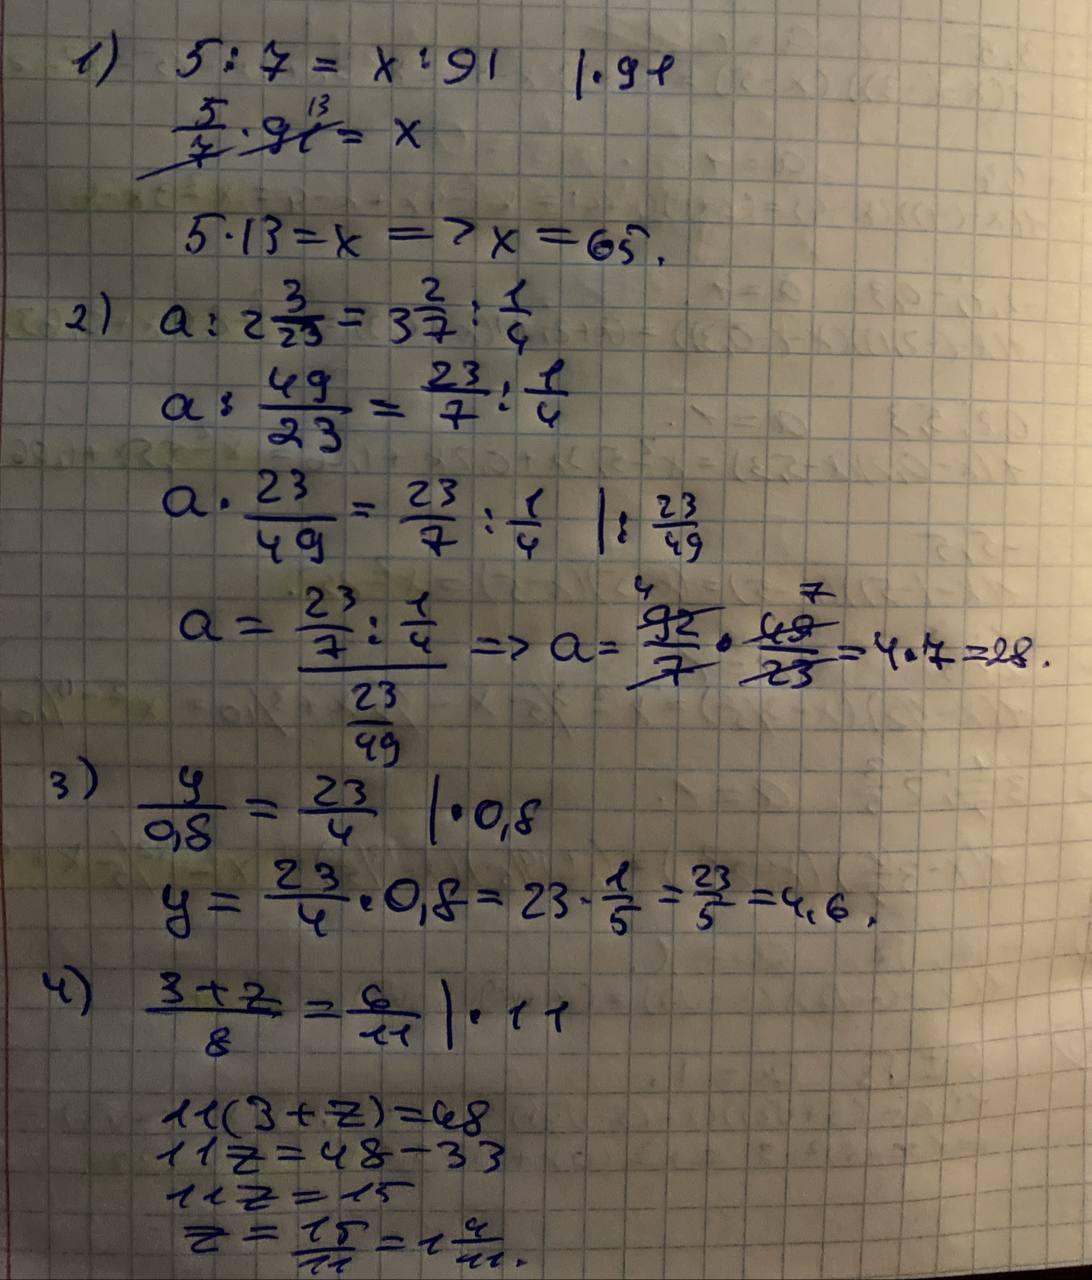 1) 5 : 7 = x : 91 | · 91
5/7 · 91 13 = x
5 · 13 = x => x = 65.
2) a : 2 3/23 = 3 2/7 : 1/4
a : 49/23 = 23/7 : 1/4
a · 23/49 = 23/7 : 1/4 | : 23/49
a = (23/7 : 1/4)/(23/49) => a = 92/7 4 · 49/23 7 = 4 · 7 = 28.
3) y/0,8 = 23/4 | · 0,8
y = 23/4 · 0,8 = 23 · 1/5 = 23/5 = 4,6.
4) (3 + z)/8 = 6/11 | · 11
11(3 + z) = 48
11z = 48 - 33
11z = 15
z = 15/11 = 1 4/11.